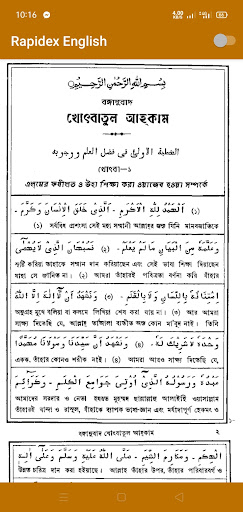 10:16
4.00 KB/S
Rapidex English
بِسْمِ اللهِ الرَّحْمٰنِ الرَّحِيْمِ
বঙ্গানুবাদ
খোৎবাতুল আহ্‌কাম
الخطبة الاولى فى فضل العلم ووجوبه
খোৎবা—১
এল্‌মের ফযীলত ও উহা শিক্ষা করা ওয়াজেব হওয়া সম্পর্কে
(১) اَلْحَمْدُ لِلّٰهِ الْاَكْرَمِ - الَّذِىْ خَلَقَ الْاِنْسَانَ وَكَرَّمَ -
(১) সর্ববিধ প্রশংসা সেই মহা সম্মানী আল্লাহ্‌র জন্য যিনি মানবজাতিকে
وَعَلَّمَهٗ مِنَ الْبَيَانِ مَالَمْ يَعْلَمْ - (২) فَسُبْحَانَ الَّذِىْ لَايُحْصٰى
সৃষ্টি করিয়া তাহাকে সম্মান দান করিয়াছেন এবং সেই ভাষা শিক্ষা দিয়াছেন
যাহা সে জানিত না। (২) আমরা তাঁহারই পবিত্রতা বর্ণনা করি যাঁহার
اِمْتِنَانُهٗ بِاللِّسَانِ وَلَابِالْقَلَمِ - (৩) وَنَشْهَدُ اَنْ لَّا اِلٰهَ اِلَّا اللهُ
অনুগ্রহ মুখে বলিয়া বা কলমে লিখিয়া শেষ করা যায় না। (৩) আর আমরা
সাক্ষ্য দিতেছি যে, আল্লাহ্ তাআলা ব্যতীত অন্য কোন মা'বুদ নাই। তিনি
وَحْدَهٗ لَا شَرِيْكَ لَهٗ - (৪) وَنَشْهَدُ اَنَّ سَيِّدَنَا وَمَوْلَانَا مُحَمَّدًا
একক, তাঁহার কোনও শরীক নাই। (৪) আমরা আরও সাক্ষ্য দিতেছি যে,
عَبْدُهٗ وَرَسُوْلُهُ الَّذِىْ اُوْتِىَ جَوَامِعَ الْكَلِمِ - وَكَرَائِمَ
আমাদের সরদার ও নেতা হযরত মুহম্মদ ছাল্লাল্লাহু আলাইহি ওয়াসাল্লাম
তাঁহারই বান্দা ও রাসূল, যাঁহাকে ব্যাপক ভাষা-জ্ঞান এবং মর্যাদাপূর্ণ হেকমত ও
বঙ্গানুবাদ খোৎবাতুল আহ্‌কাম ২
الْحِكَمِ - وَمَكَارِمَ الشِّيَمِ - صَلَّى اللهُ عَلَيْهِ وَسَلَّمَ وَعَلٰى اٰلِهٖ
উন্নত চরিত্র দান করা হইয়াছে। আল্লাহ্ তাঁহার উপর, তাঁহার পরিবারবর্গ ও